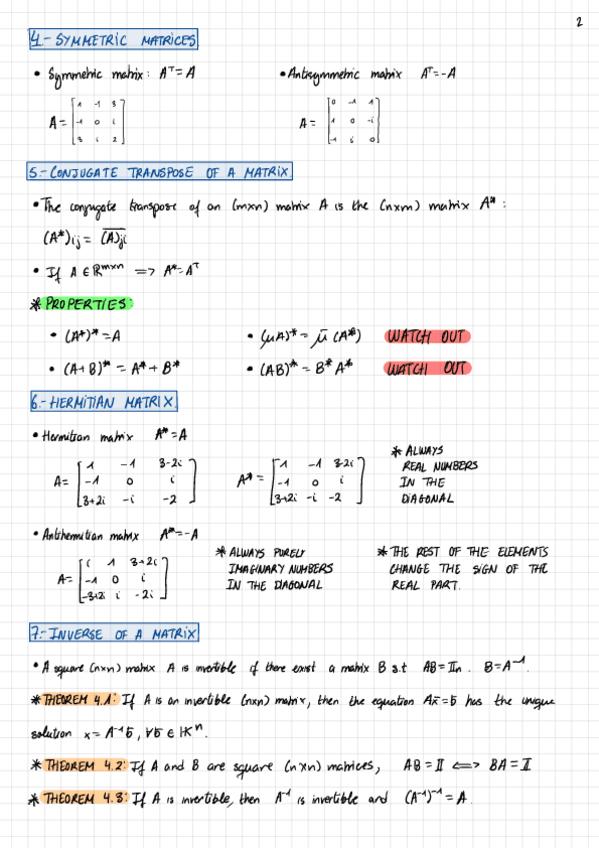 2
4.- SYMMETRIC MATRICES
• Symmetric matrix: Aᵀ=A • Antisymmetric matrix Aᵀ=-A
A = [1 -1 3; -1 0 i; 3 i 2] A = [0 -1 1; 1 0 -i; -1 i 0]
5.- CONJUGATE TRANSPOSE OF A MATRIX
• The conjugate transpose of an (m×n) matrix A is the (n×m) matrix A* :
(A*)ij = \overline{(A)ji}
• If A ∈ ℝᵐˣⁿ => A*=Aᵀ
* PROPERTIES:
• (A*)* = A • (μA)* = μ̄ (A*) WATCH OUT
• (A+B)* = A* + B* • (AB)* = B* A* WATCH OUT
6.- HERMITIAN MATRIX
• Hermitian matrix A*=A
A= [1 -1 3-2i; -1 0 i; 3+2i -i -2] A* = [1 -1 3-2i; -1 0 i; 3+2i -i -2]
* ALWAYS
REAL NUMBERS
IN THE
DIAGONAL
• Antihermitian matrix A*=-A
A= [i 1 3+2i; -1 0 i; -3+2i i -2i]
* ALWAYS PURELY
IMAGINARY NUMBERS
IN THE DIAGONAL
* THE REST OF THE ELEMENTS
CHANGE THE SIGN OF THE
REAL PART.
7.- INVERSE OF A MATRIX
• A square (n×n) matrix A is invertible if there exist a matrix B s.t AB=𝕀n. B=A⁻¹.
* THEOREM 4.1: If A is an invertible (n×n) matrix, then the equation Ax̄=b̄ has the unique
solution x = A⁻¹b̄, ∀b̄ ∈ 𝕂ⁿ.
* THEOREM 4.2: If A and B are square (n×n) matrices, AB = 𝕀 <=> BA = 𝕀
* THEOREM 4.3: If A is invertible, then A⁻¹ is invertible and (A⁻¹)⁻¹ = A.